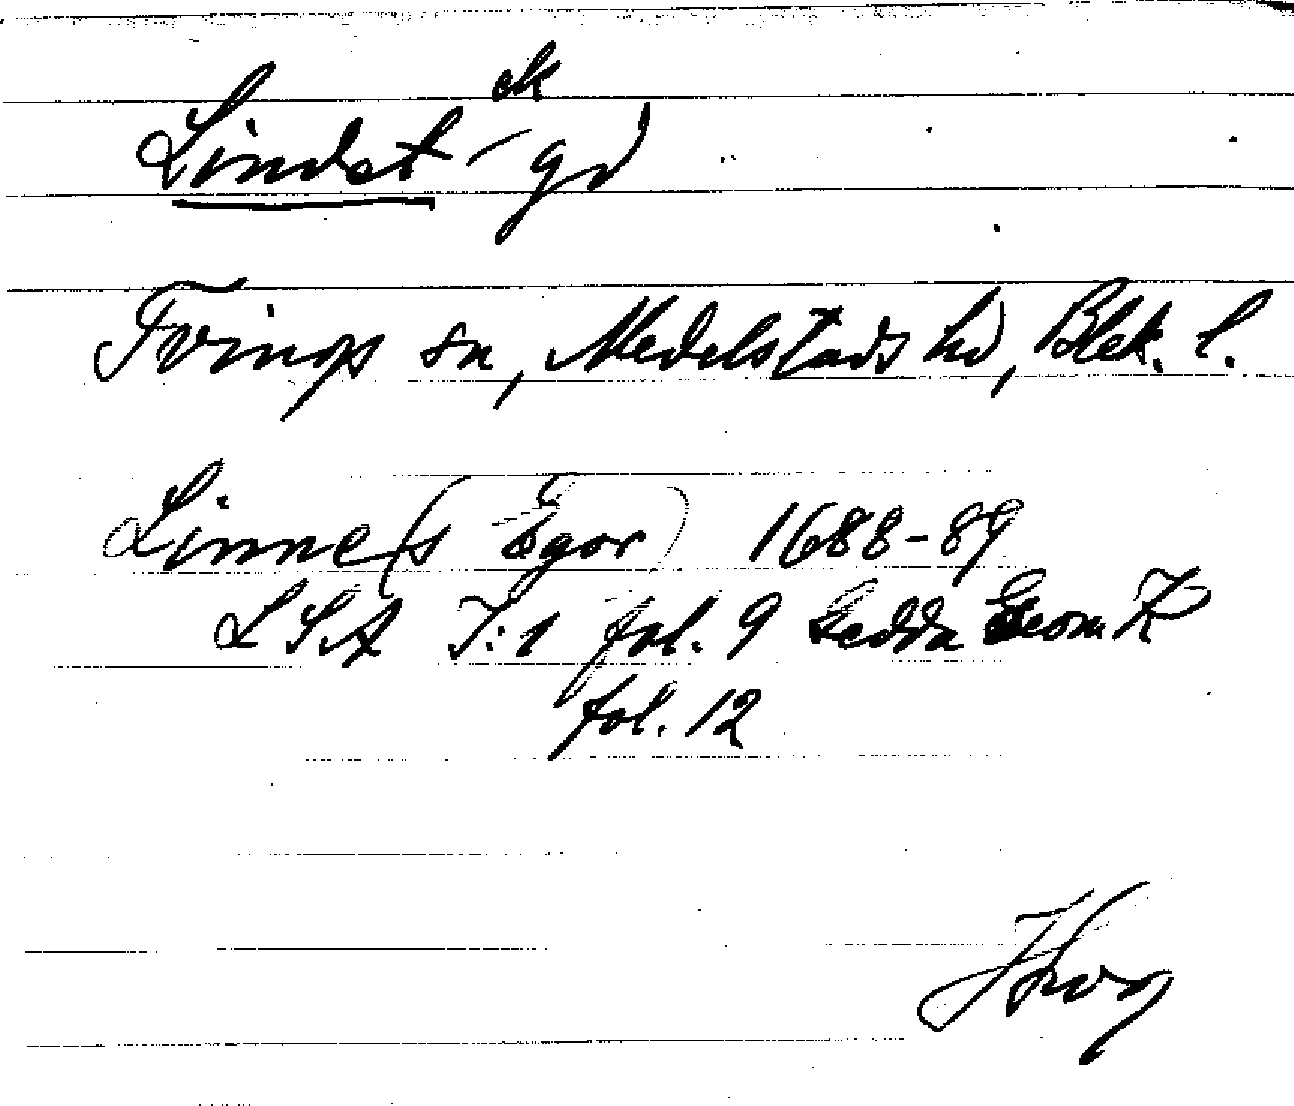 ek
Lindet - gd
Tvings sn, Medelstads hd, Blek. l.
Linne(s Egor) 1688-89
LSA I:1 fol. 9 Gedda Geom K
fol. 12